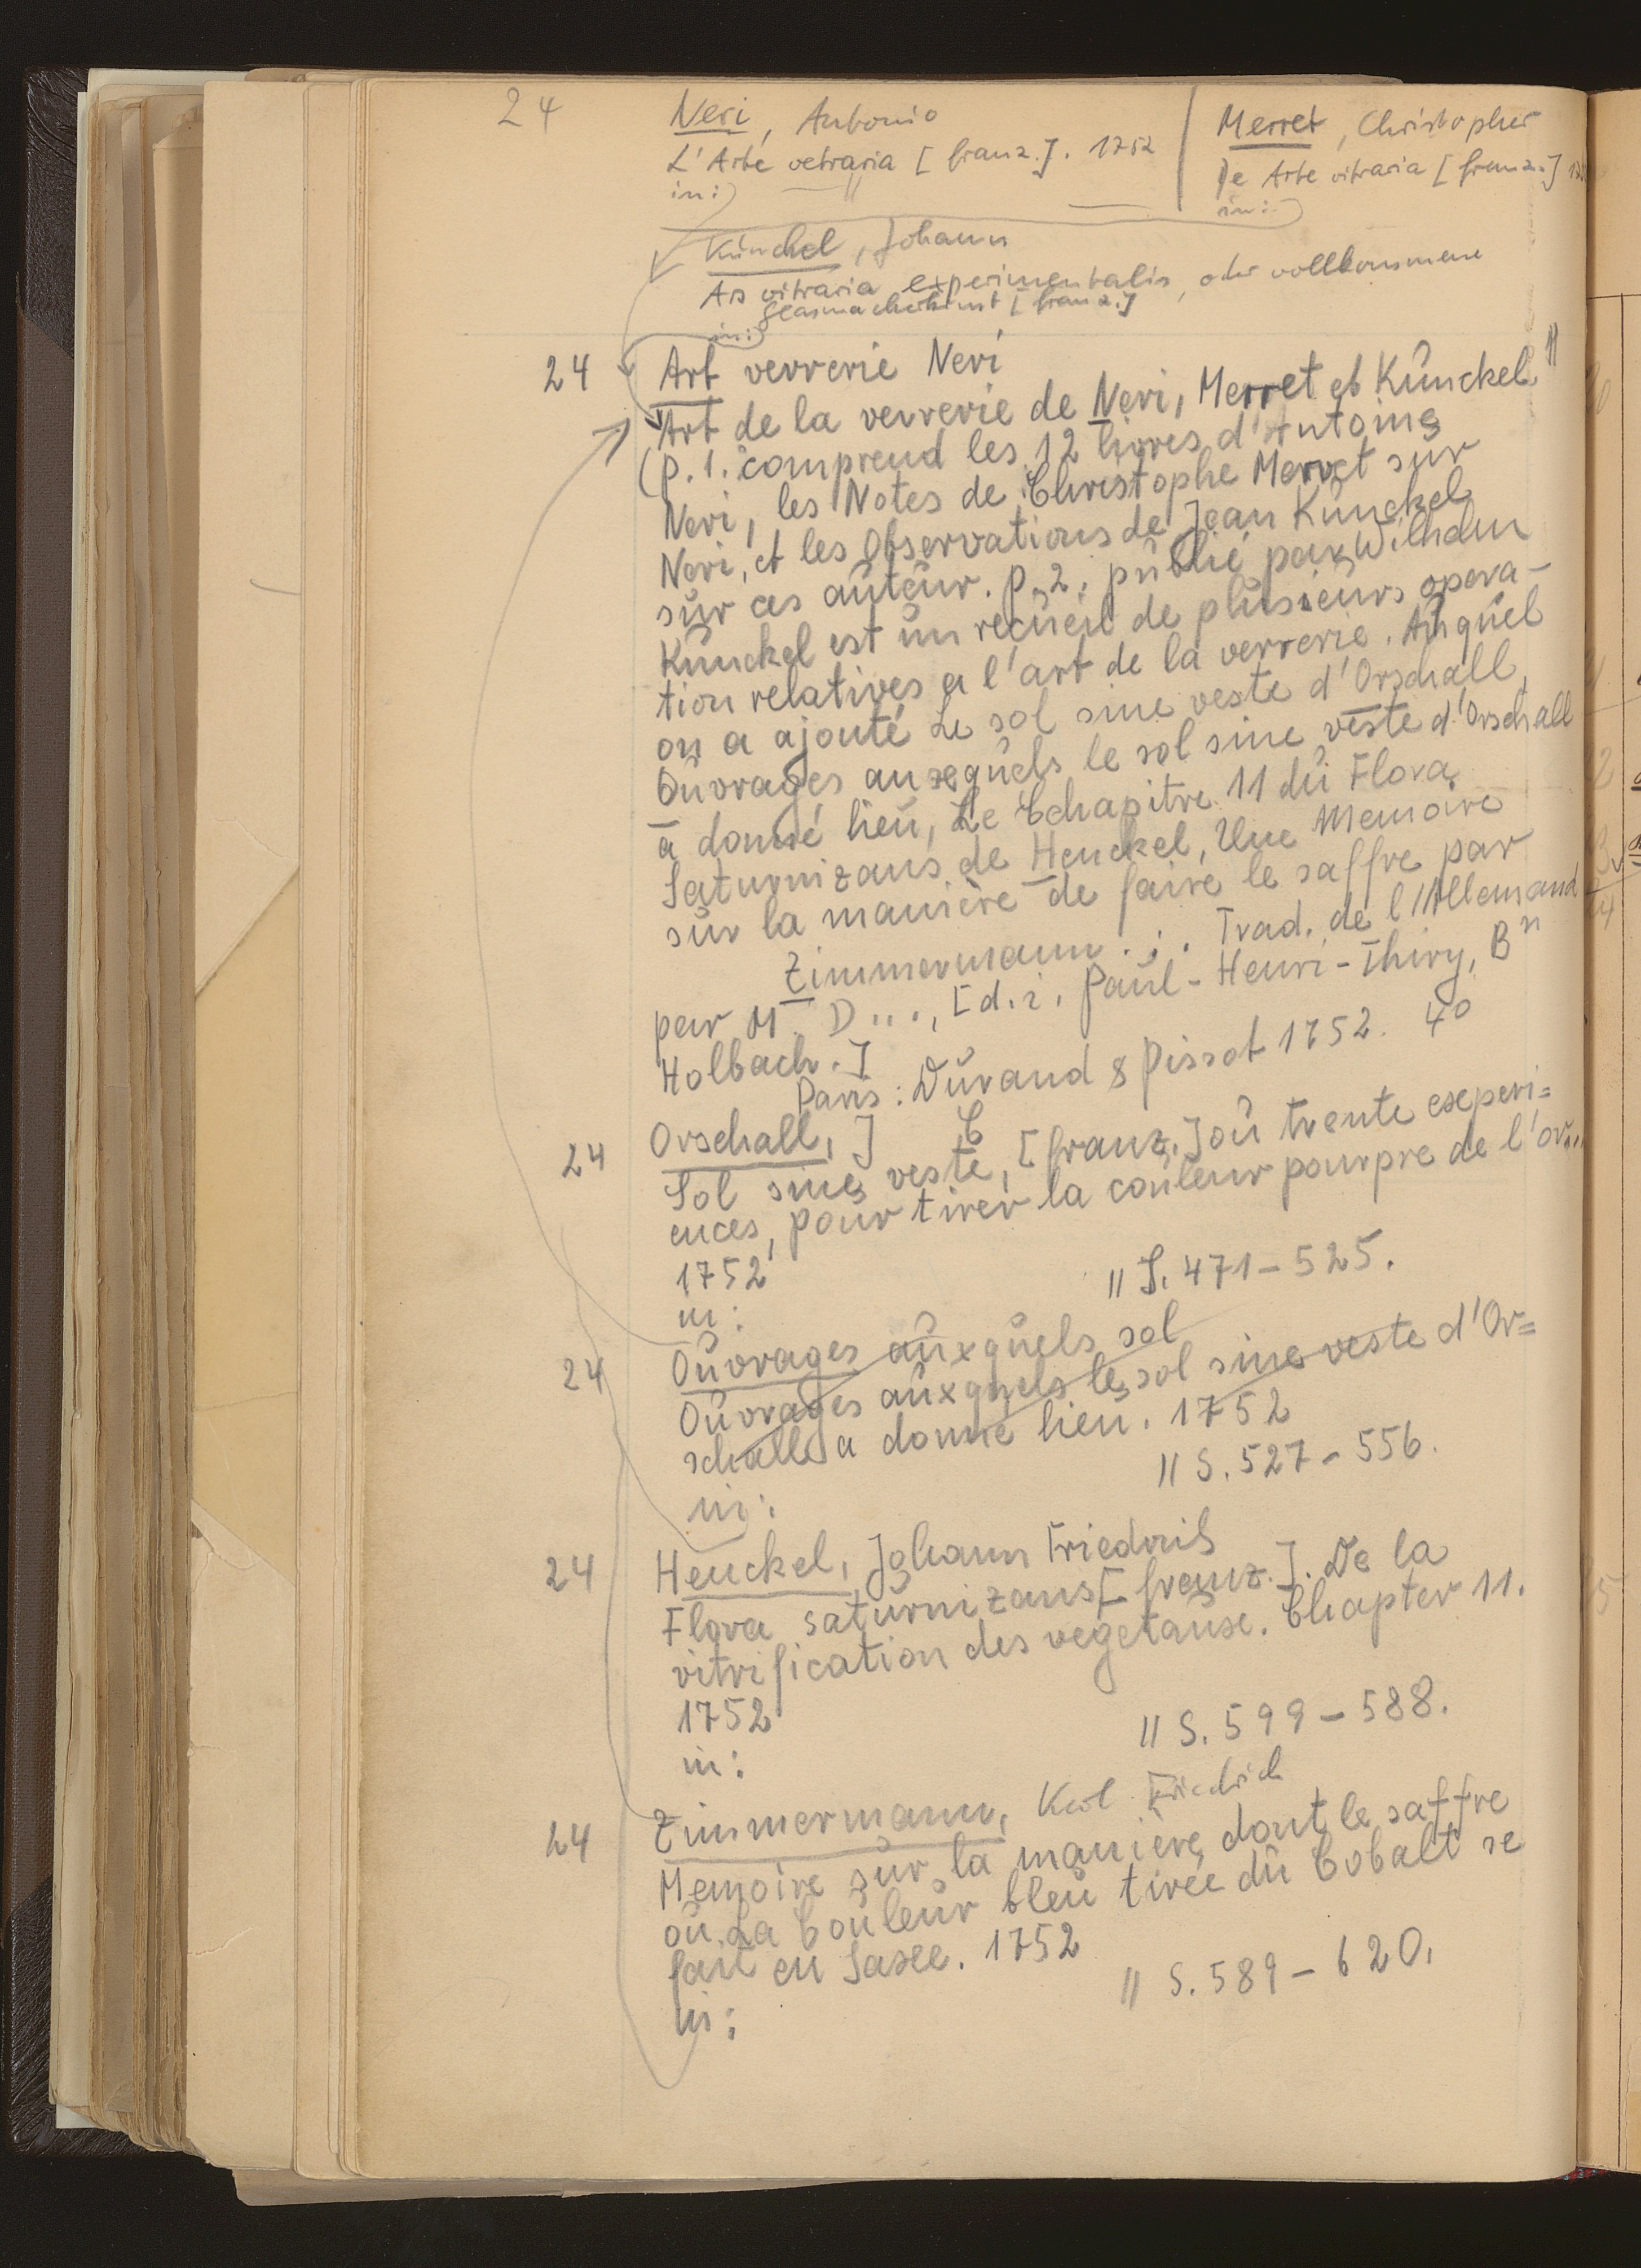 24
Neri, Antonio
L'Arte vetraria [franz.]. 1752
in:)
Merret, Christopher
De Arte vitraria [franz.]
in:)
Künckel, Johann
Ars vitraria experimentalis, oder vollkommene
Glasmacherkunst [franz.]
in:)
24 Art verrerie Neri
Art de la verrerie de Neri, Merret et Kunckel "
(p. 1. comprend les 12 livres d'Antoine
Neri, les Notes de Christophe Merret sur
Neri, et les Observations de Jean Kunckel
sur ces auteur. p. 2. publié par Wilhelm
Kunckel est un recueil de plusieurs opera-
tion relatives a l'art de la verrerie. Auquel
on a ajouté Le sol sine veste d'Orschall,
Ouvrages auxequels le sol sine veste d'Orschall
a donné lieu, Le Chapitre 11 du Flora
Saturnizans de Henckel, Une Memoire
sur la manière de faire le saffre par
Zimmermann . . . Trad. de l'Allemand
par M. D..., [d.i. Paul-Henri-Thiry, Bn
Holbach.]
Paris: Durand & Pissot 1752. 4o
24 Orschall, J C
Sol sine veste, [franz.] ou trente experi=
ences, pour tirer la couleur pourpre de l'or...
1752
in: || S. 471-525.
24 Ouvrages auxquels sol
Ouvrages auxquels le sol sine veste d'Or=
schall a donné lieu. 1752
|| S. 527-556.
in:
24 Henckel, Johann Friedrich
Flora saturnizans [franz.]. De la
vitrification des vegetause. Chapter 11.
1752
in: || S. 599-588.
24 Zimmermann, Karl Friedrich
Memoire sur la manière dont le saffre
ou La Couleur bleu tirée du Cobalt se
fait en Saxe. 1752
|| S. 589-620.
in: